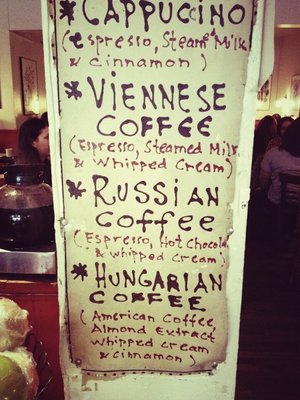 * CAPPUCINO
(espresso, Steamed Milk
& Cinnamon)
* VIENNESE
COFFEE
(Espresso, Steamed Milk
& Whipped Cream)
* RUSSIAN
COFFEE
(Espresso, Hot Chocola
& whipped cream)
* HUNGARIAN
COFFEE
(American Coffee,
Almond Extract
whipped cream
& cinnamon)